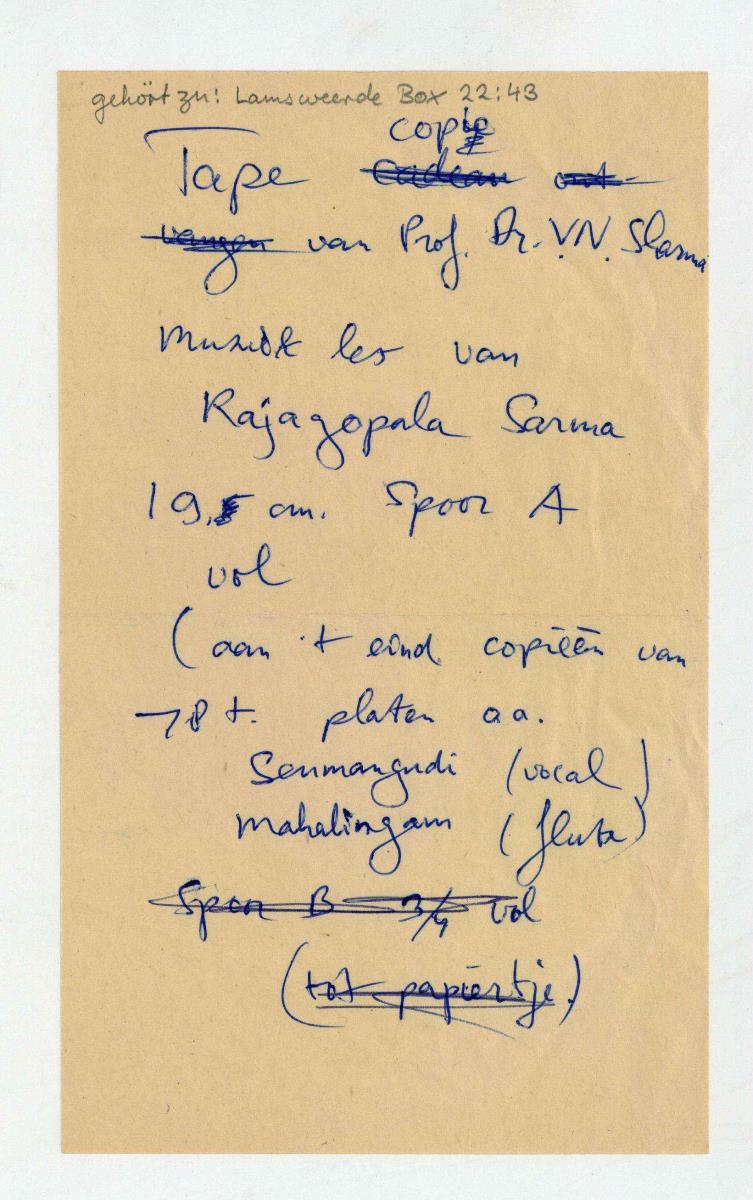 gehört zu: Lamsweerde Box 22:43
copie
Tape cadeau ont-
vangen van Prof. Dr. V.N. Sharma
Muziek les van
Rajagopala Sarma
19, cm. Spoor A
vol
(aan 't eind copiëën van
78 t. platen o.a.
Semmangudi (vocal)
Mahalingam (flute)
Spoor B 3/4 vol
(tot papiertje.)